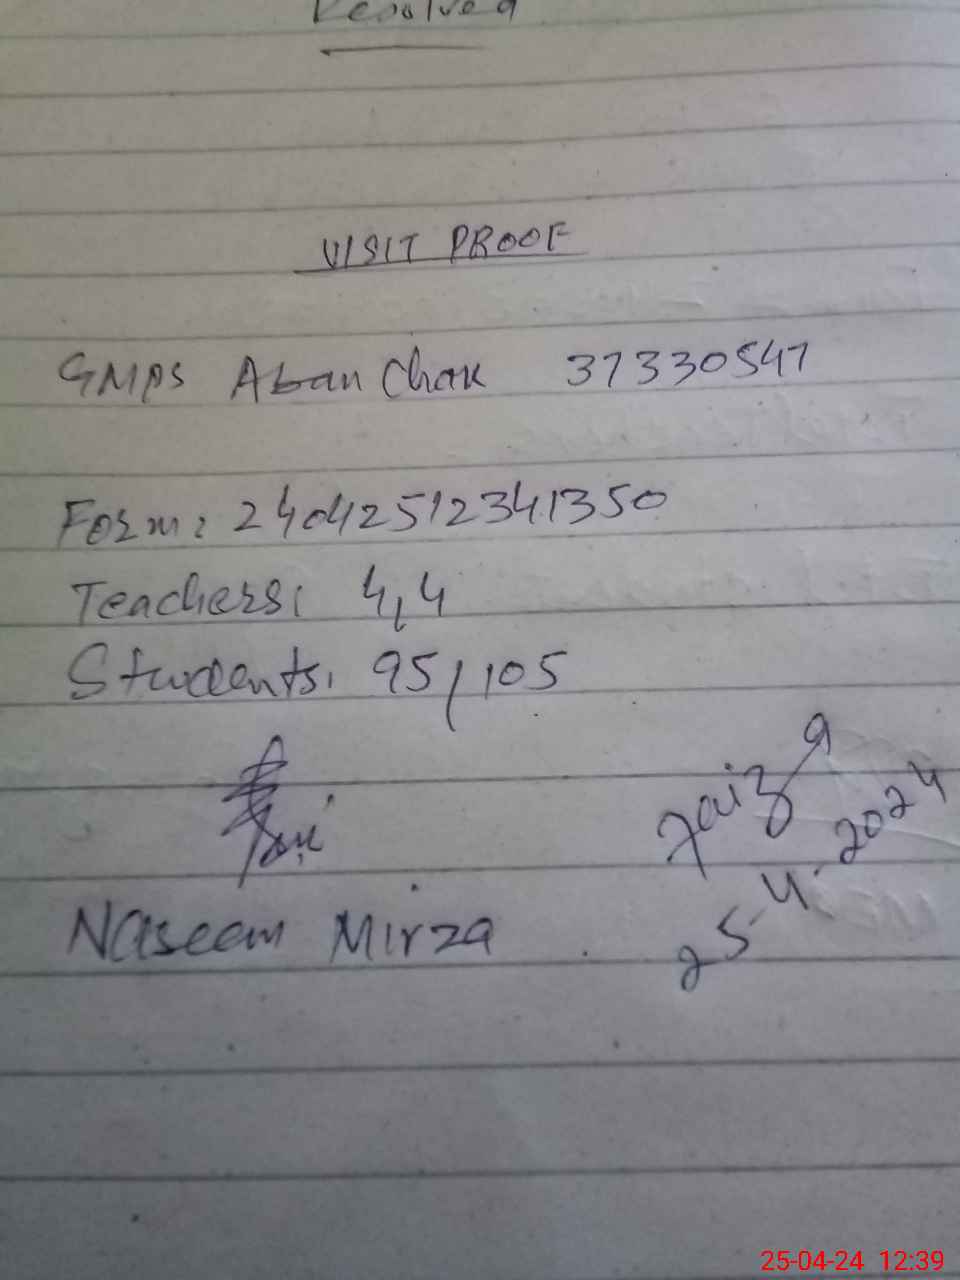 Resolved
VISIT PROOF
GMPS Aban Chak 37330547
Form: 24042512341350
Teachers: 4,4
Students: 95/105
Faiza
25-4-2024
Naseem Mirza
25-04-24 12:39